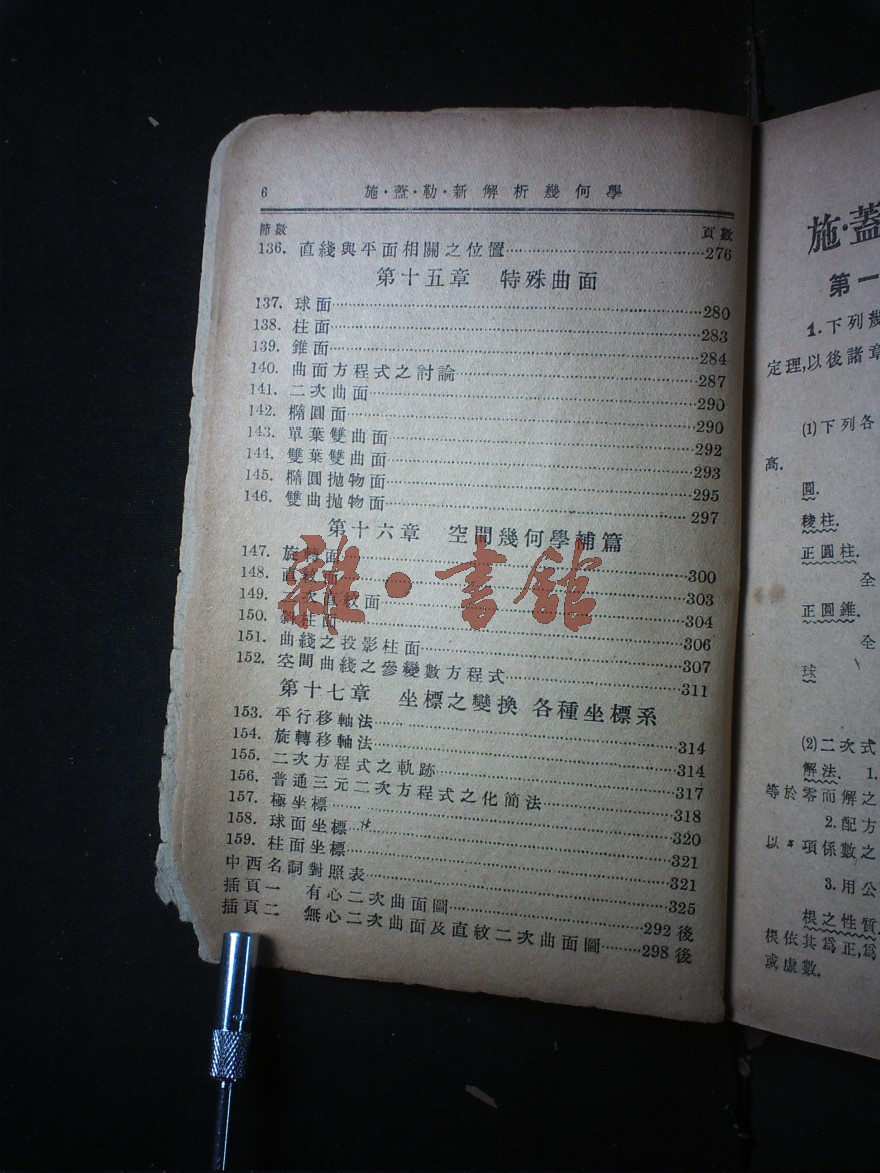 6 施·蓋·勒·新解析幾何學
節數 頁數
136. 直綫與平面相關之位置 276
第十五章 特殊曲面
137. 球面 280
138. 柱面 283
139. 錐面 284
140. 曲面方程式之討論 287
141. 二次曲面 290
142. 橢圓面 290
143. 單葉雙曲面 292
144. 雙葉雙曲面 293
145. 橢圓拋物面 295
146. 雙曲拋物面 297
第十六章 空間幾何學補篇
147. 旋轉面 300
148. 直紋面 303
149. 二次直紋面 304
150. 斜柱面 306
151. 曲綫之投影柱面 307
152. 空間曲綫之參變數方程式 311
第十七章 坐標之變換 各種坐標系
153. 平行移軸法 314
154. 旋轉移軸法 314
155. 二次方程式之軌跡 317
156. 普通三元二次方程式之化簡法 318
157. 極坐標 320
158. 球面坐標 321
159. 柱面坐標 321
中西名詞對照表 325
插頁一 有心二次曲面圖 292後
插頁二 無心二次曲面及直紋二次曲面圖 298後
雜·書館
施·蓋
第一
1.下列幾
定理,以後諸章
(1)下列各
高.
圓.
稜柱.
正圓柱.
全
正圓錐.
全
球
(2)二次式
解法. 1.
等於零而解之
2.配方
以 項係數之
3.用公
根之性質.
根依其爲正,爲
或虛數.